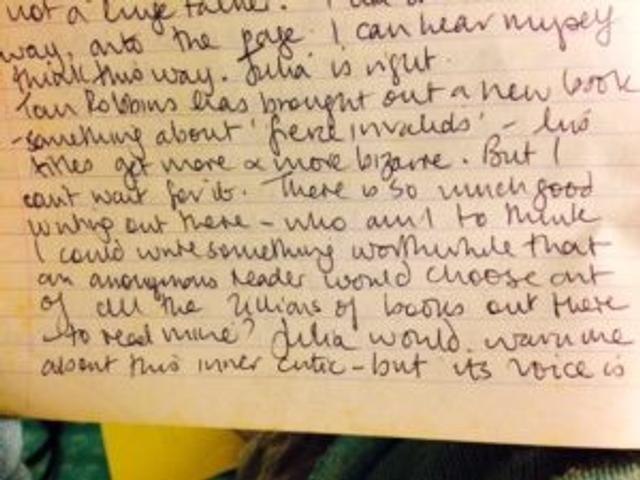 not a huge talker. I
way, onto the page. I can hear myself
think this way. Julia is right.
Tom Robbins has brought out a new book
- something about 'fierce invalids' - his
titles get more & more bizarre. But I
can't wait for it. There is so much good
writing out there - who am I to think
I could write something worthwhile that
an anonymous reader would choose out
of all the zillions of books out there
- to read mine? Julia would warn me
about this inner critic - but its voice is